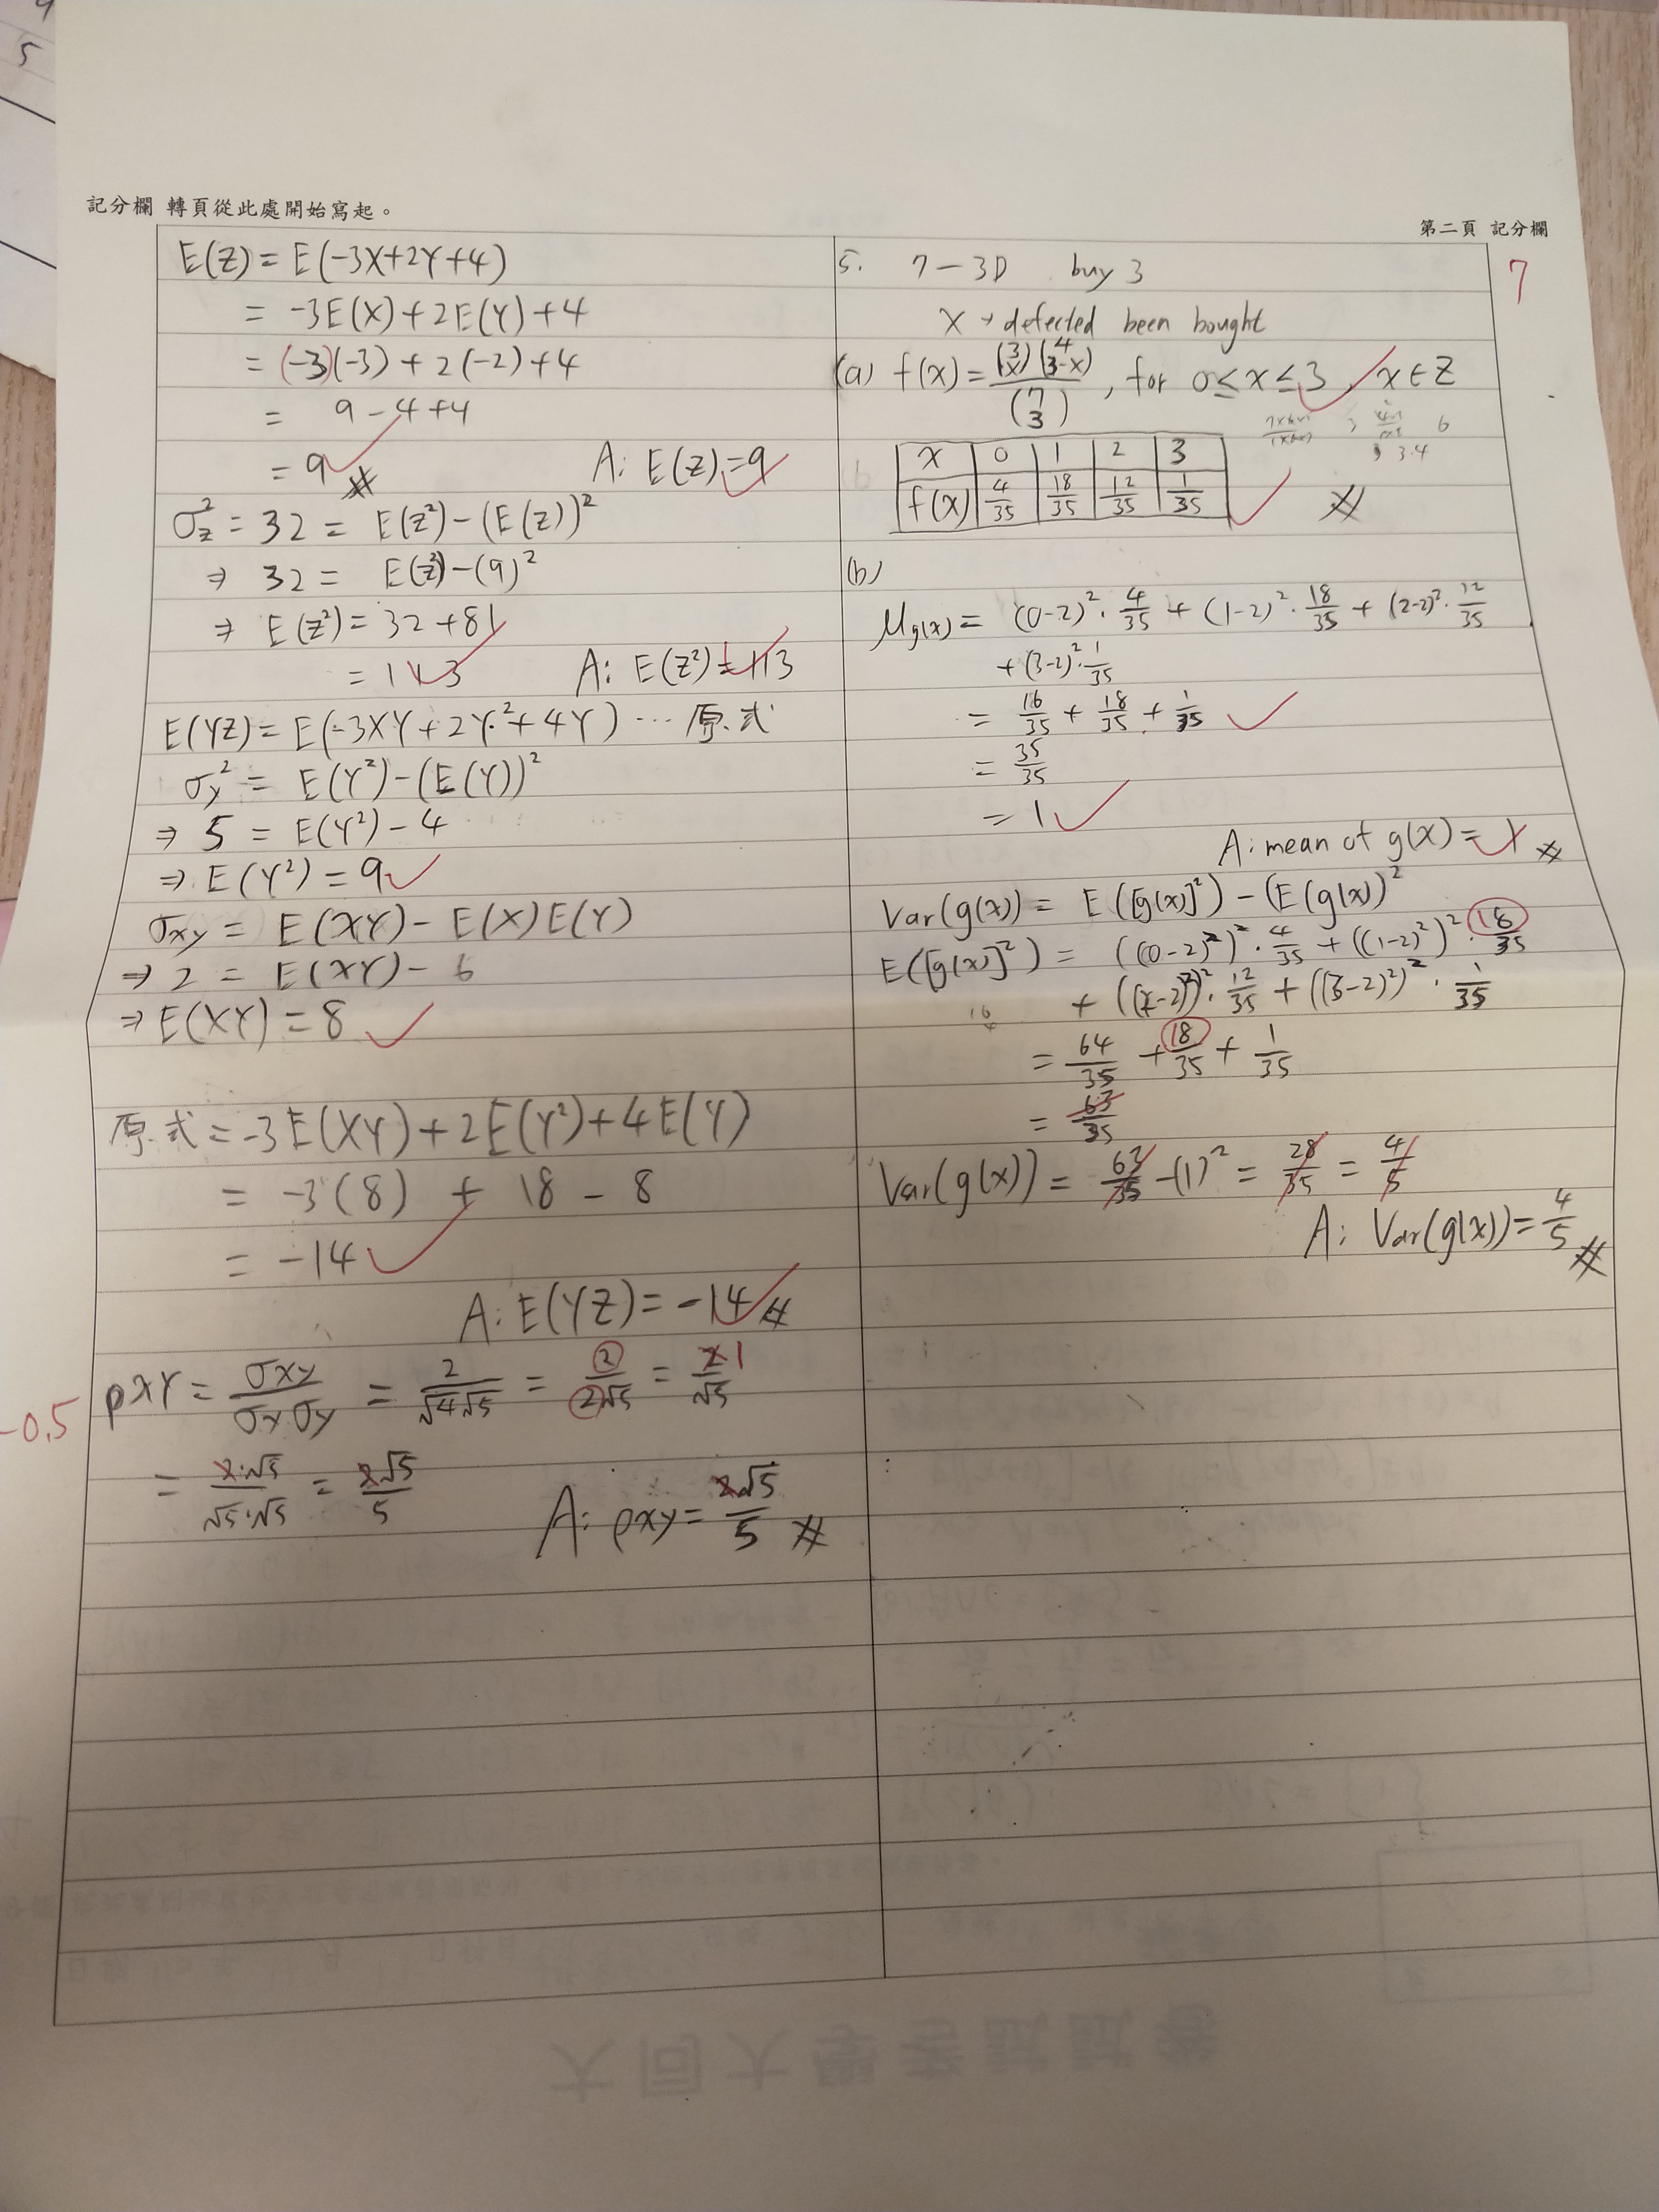 記分欄 轉頁從此處開始寫起。
第二頁 記分欄
E(Z) = E(-3X+2Y+4)
= -3E(X)+2E(Y)+4
= (-3)(-3) + 2(-2)+4
= 9-4+4
= 9
A: E(Z)=9
σz² = 32 = E(Z²)-(E(Z))²
⇒ 32 = E(Z²)-(9)²
⇒ E(Z²) = 32+81
= 113
A: E(Z²)=113
E(YZ) = E(-3XY+2Y²+4Y) ... 原式
σy² = E(Y²)-(E(Y))²
⇒ 5 = E(Y²)-4
⇒ E(Y²) = 9
σxy = E(XY)-E(X)E(Y)
⇒ 2 = E(XY)-6
⇒ E(XY) = 8
原式 = -3E(XY)+2E(Y²)+4E(Y)
= -3(8) + 18 - 8
= -14
A: E(YZ) = -14
-0.5
ρXY = σxy/σxσy = 2/√4√5 = 2/2√5 = 2/√5 1
= 2·√5/√5·√5 = 2√5/5
A: ρxy = 2√5/5
7
5. 7-3D buy 3
X → defected been bought
(a) f(x) = (3 x)(4 3-x)/(7 3), for 0≤x≤3, x∈Z
x 0 1 2 3
f(x) 4/35 18/35 12/35 1/35
(b)
μg(x) = (0-2)²·4/35 + (1-2)²·18/35 + (2-2)²·12/35
+(3-2)²·1/35
= 16/35 + 18/35 + 1/35
= 35/35
= 1
A: mean of g(X) = 1
Var(g(x)) = E([g(x)]²)-(E(g(x))²
E([g(x)]²) = ((0-2)²)²·4/35 + ((1-2)²)²·18/35
+ ((2-2)²)²·12/35 + ((3-2)²)²·1/35
= 64/35 + 18/35 + 1/35
= 63/35
Var(g(x)) = 63/35 -(1)² = 28/35 = 4/5
A: Var(g(x)) = 4/5